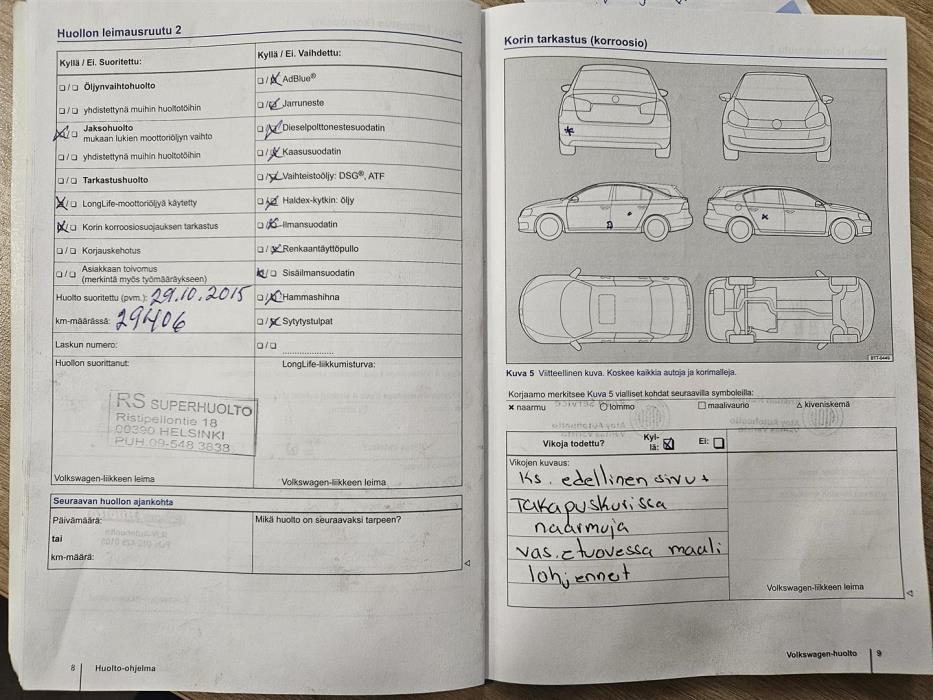 Huollon leimausruutu 2
Kyllä / Ei. Suoritettu:
☐/☐ Öljynvaihtohuolto
☐/☐ yhdistettynä muihin huoltotöihin
☒/☐ Jaksohuolto
mukaan lukien moottoriöljyn vaihto
☐/☐ yhdistettynä muihin huoltotöihin
☐/☐ Tarkastushuolto
☒/☐ LongLife-moottoriöljyä käytetty
☒/☐ Korin korroosiosuojauksen tarkastus
☐/☐ Korjauskehotus
☐/☐ Asiakkaan toivomus
(merkintä myös työmääräykseen)
Huolto suoritettu (pvm.): 29.10.2015
km-määrässä: 29406
Laskun numero:
Huollon suorittanut:
RS SUPERHUOLTO
Ristipellontie 18
00390 HELSINKI
PUH. 09-548 3838
Volkswagen-liikkeen leima
Kyllä / Ei. Vaihdettu:
☐/☒ AdBlue®
☐/☒ Jarruneste
☐/☒ Dieselpolttonestesuodatin
☐/☒ Kaasusuodatin
☐/☒ Vaihteistoöljy: DSG®, ATF
☐/☒ Haldex-kytkin: öljy
☐/☒ Ilmansuodatin
☐/☒ Renkaantäyttöpullo
☒/☐ Sisäilmansuodatin
☐/☒ Hammashihna
☐/☒ Sytytystulpat
☐/☐ ....................
LongLife-liikkumisturva:
Volkswagen-liikkeen leima
Seuraavan huollon ajankohta
Päivämäärä:
tai
km-määrä:
Mikä huolto on seuraavaksi tarpeen?
8 Huolto-ohjelma
Korin tarkastus (korroosio)
BTT-0449
Kuva 5 Viitteellinen kuva. Koskee kaikkia autoja ja korimalleja.
Korjaamo merkitsee Kuva 5 vialliset kohdat seuraavilla symboleilla:
× naarmu ○ lommo ☐ maalivaurio △ kiveniskemä
Vikoja todettu? Kyl-
lä: ☒ Ei: ☐
Vikojen kuvaus:
ks. edellinen sivu +
Takapuskurissa
naarmuja
vas. etuovessa maali
lohjennet
Volkswagen-liikkeen leima
Volkswagen-huolto 9